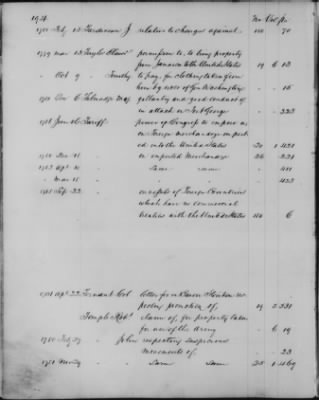 194.
No Vol. Pa.
1780 Feby 13 Henderson J relative to charges against 158 70
1779 mar 13 Taylor permission to, to bring property
from Jamaica to the United States 19 6 13
" Oct 9 " Timothy to pay, for clothing taken from
him by order of Gen Washington " " 15
1780 Dec 6 Talmadge Maj gallantry and good conduct of
in attack on Fort George " 223
Tariff power of Congress to impose an
on Foreign merchandize import
ed into the United States 20 1 421
Dec 11 " on imported Merchandize 26 "
1783 Apl " Same same " 411
" Mar 11 " " 423
1785 Sep 22 on vessels of Foreign Countries
which have no commercial
treaties with the United States 6
1781 Apl 22 Ternant Col letter from Baron Steuben re-
pecting promotion of, 19 2 331
Temple Robt claim of, for property taken
for use of the Army " 6 19
1780 July 27 " John respecting suspicious
movements of " 23
1781 Same Same 25 1 469